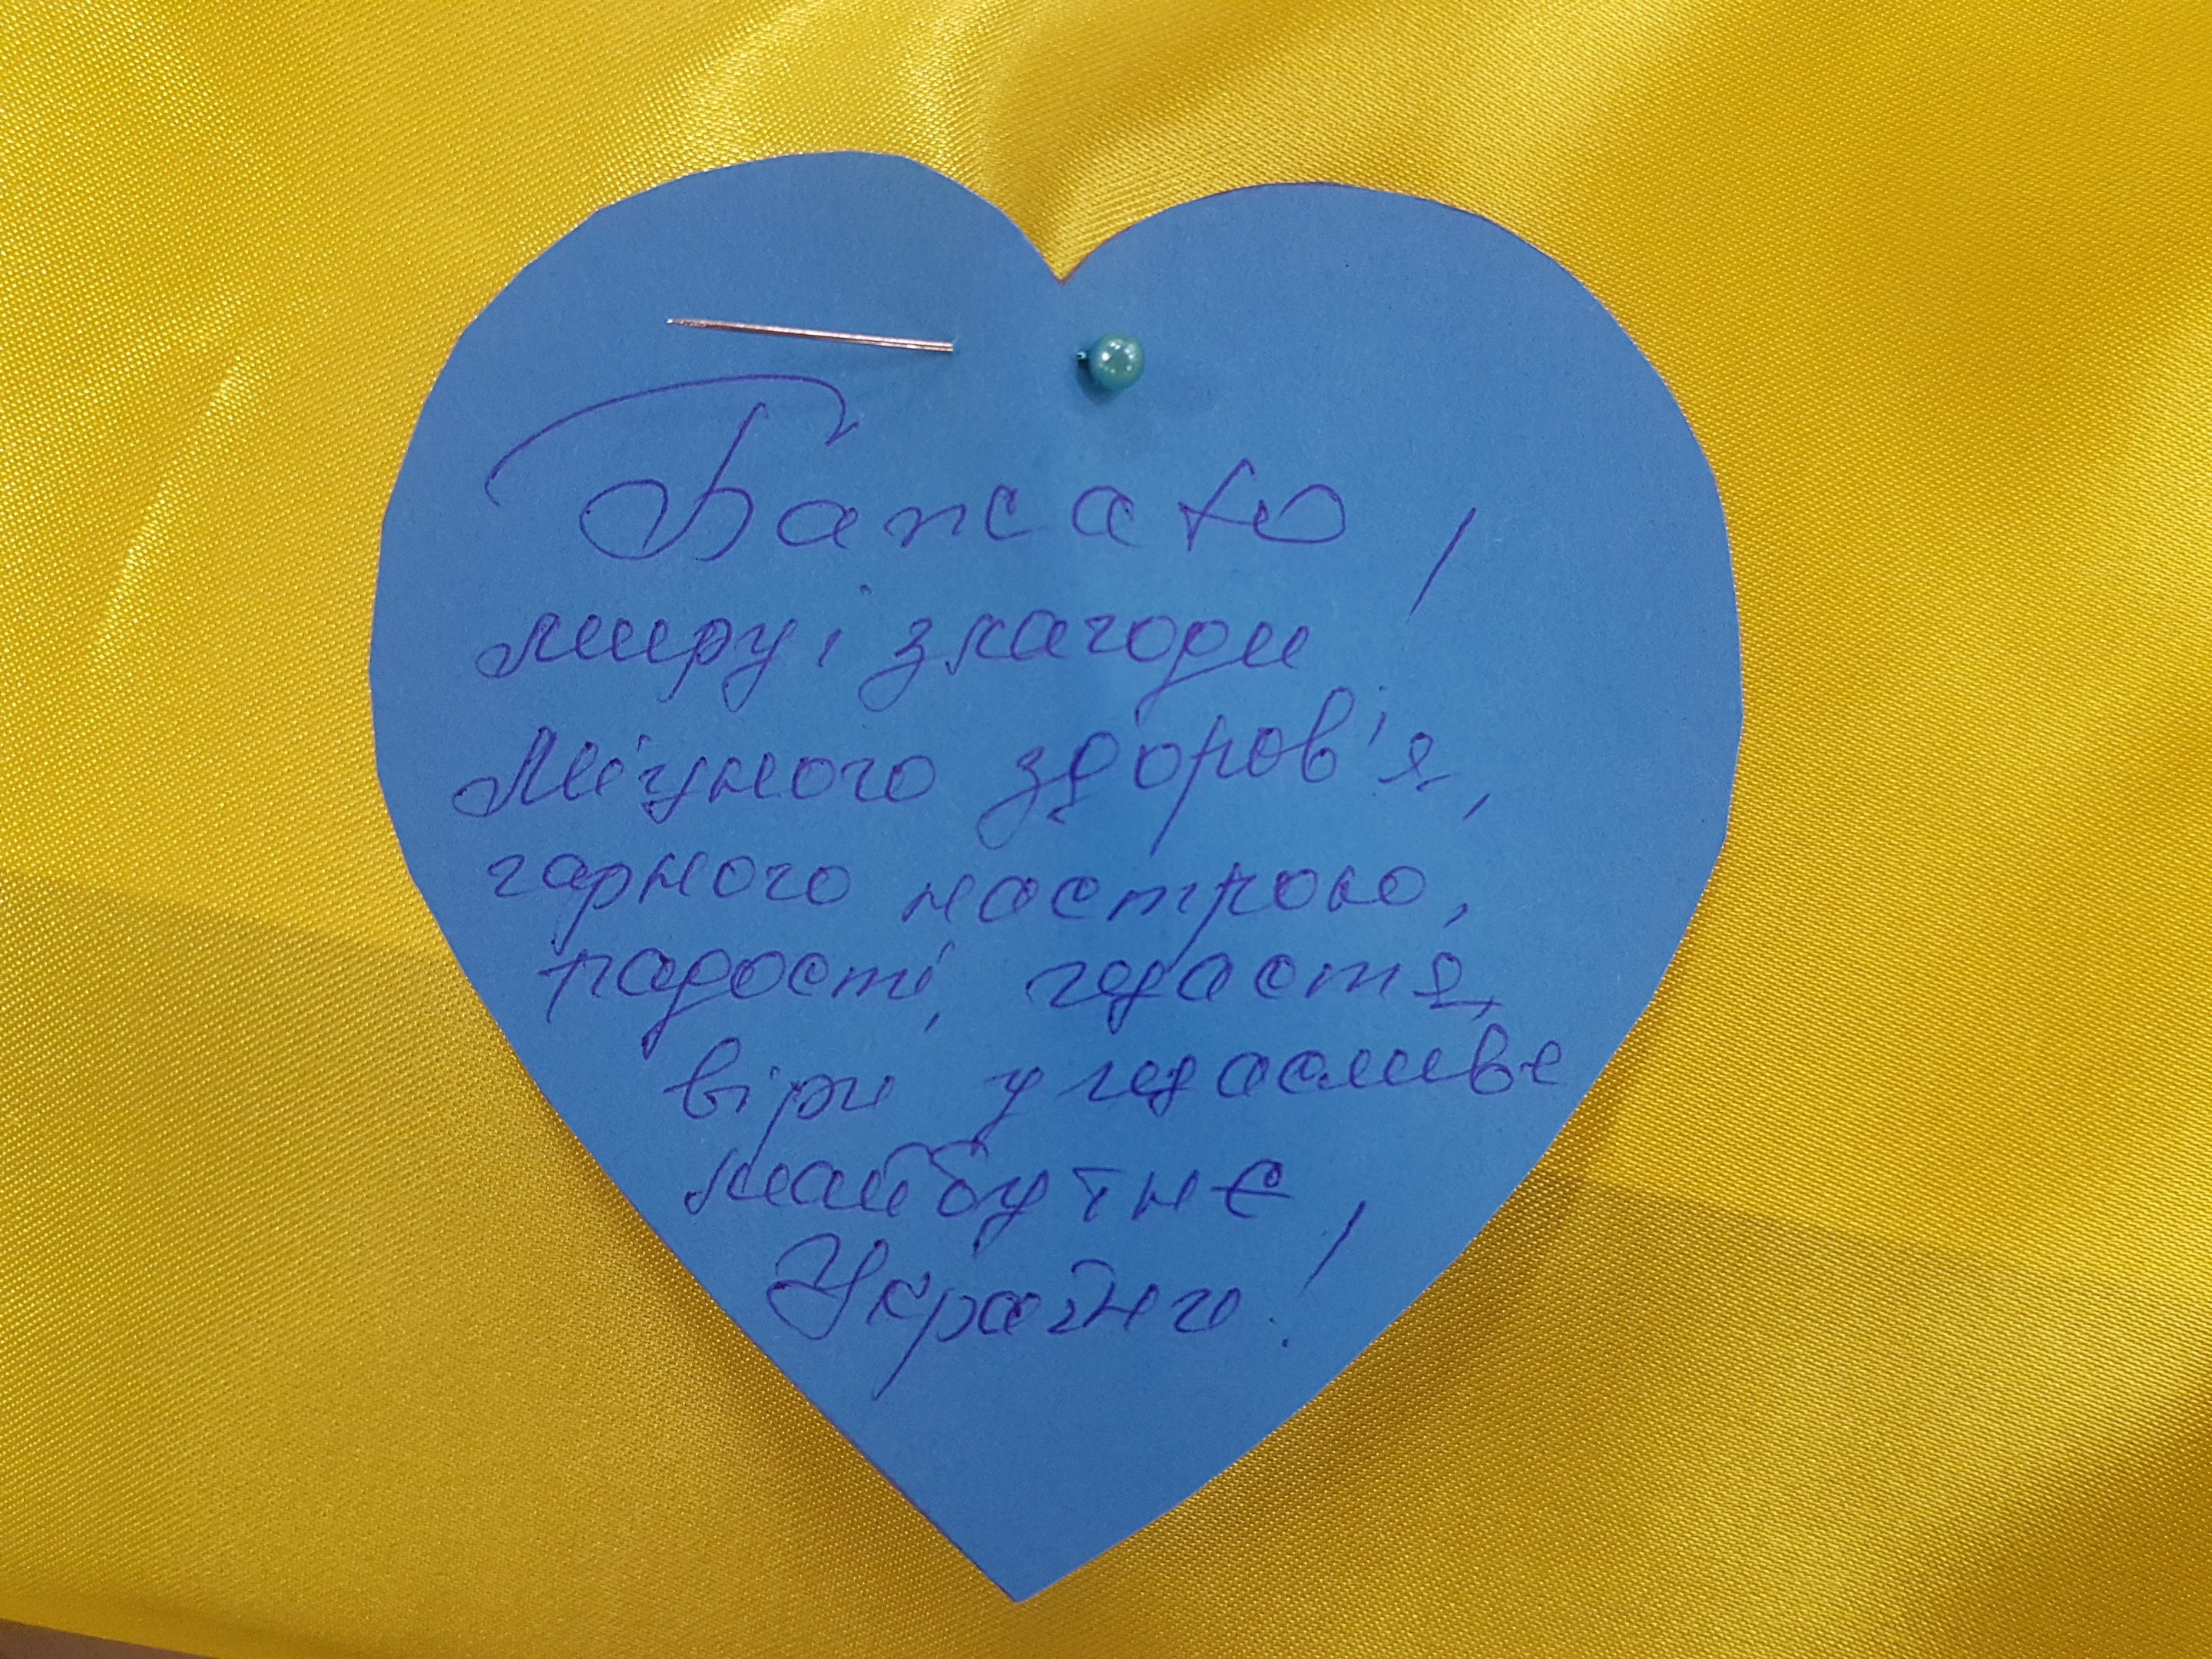 Бажаю
миру і злагоди!
Міцного здоров'я,
гарного настрою,
радості, щастя,
віри у щасливе
майбутнє
Україно!